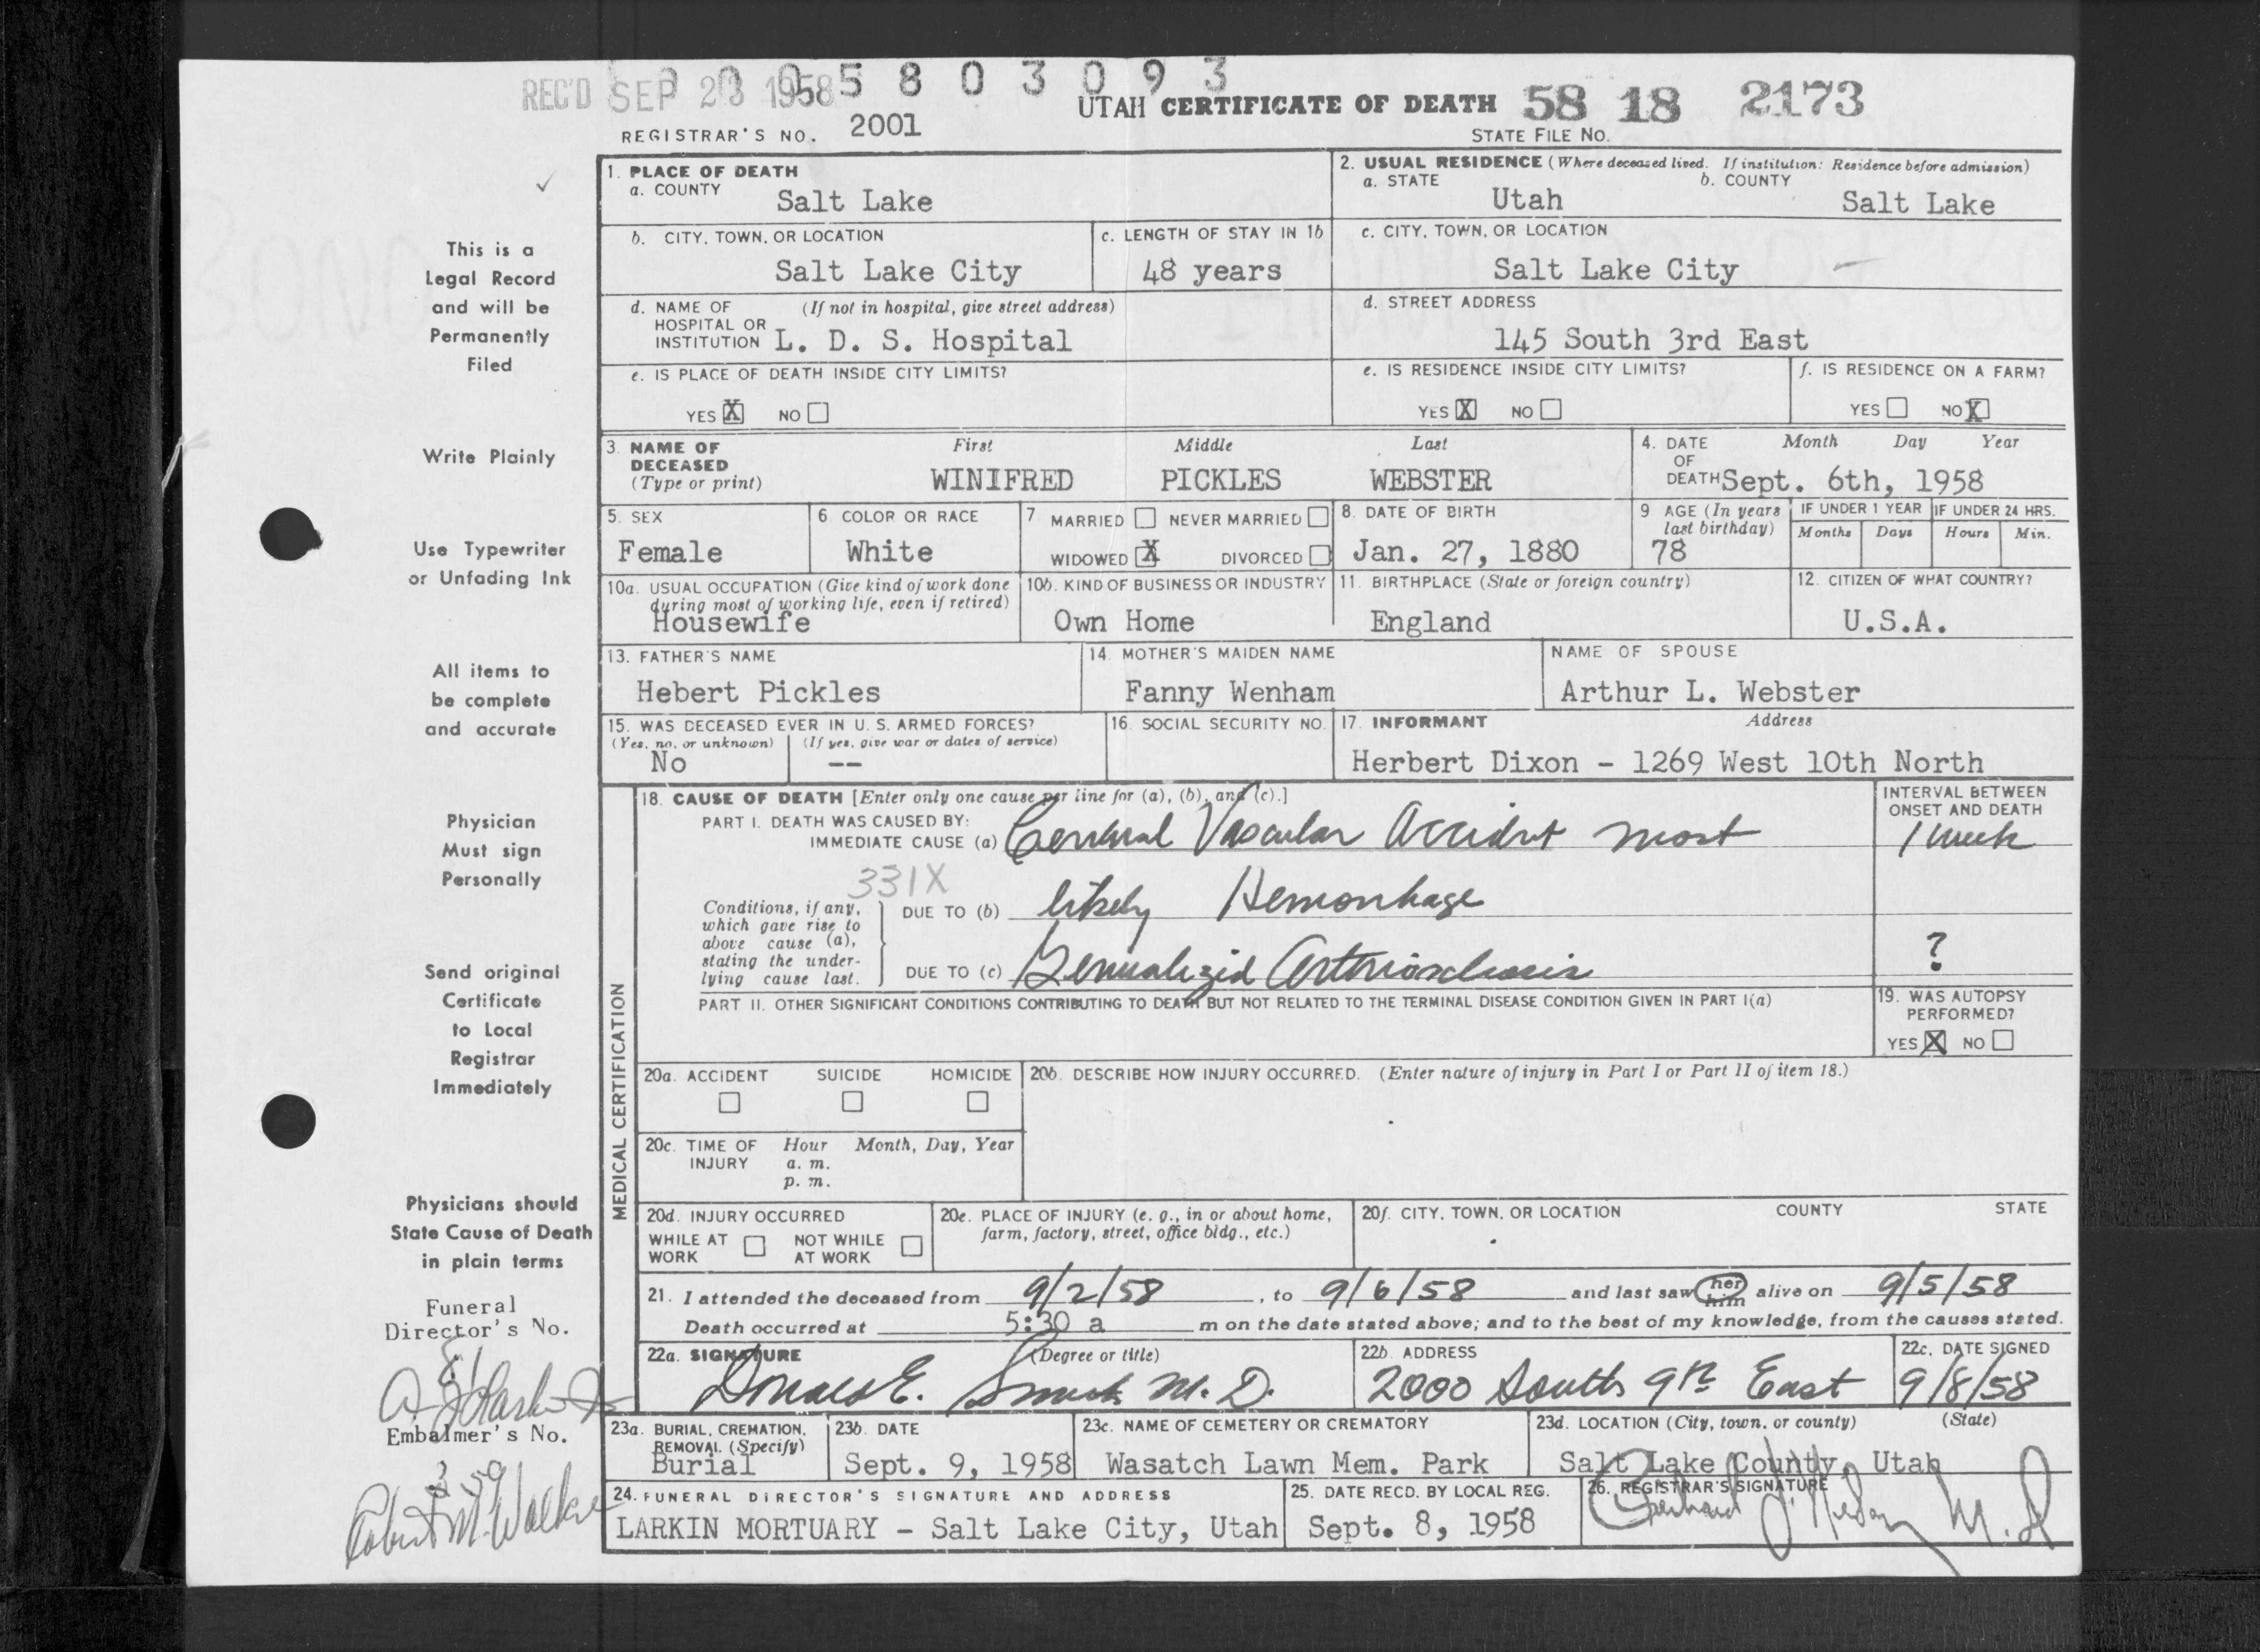 REC'D SEP 23 1958 5 8 0 3 0 9 3
UTAH CERTIFICATE OF DEATH 58 18 2173
REGISTRAR'S NO. 2001 STATE FILE NO.
This is a
Legal Record
and will be
Permanently
Filed
Write Plainly
Use Typewriter
or Unfading Ink
All items to
be complete
and accurate
Physician
Must sign
Personally
Send original
Certificate
to Local
Registrar
Immediately
Physicians should
State Cause of Death
in plain terms
Funeral
Director's No.
81
Embalmer's No.
359
Robert M. Walker
1. PLACE OF DEATH
a. COUNTY
Salt Lake
2. USUAL RESIDENCE (Where deceased lived. If institution: Residence before admission)
a. STATE b. COUNTY
Utah Salt Lake
b. CITY, TOWN, OR LOCATION
Salt Lake City
c. LENGTH OF STAY IN 1b
48 years
c. CITY, TOWN, OR LOCATION
Salt Lake City
d. NAME OF (If not in hospital, give street address)
HOSPITAL OR
INSTITUTION L. D. S. Hospital
d. STREET ADDRESS
145 South 3rd East
e. IS PLACE OF DEATH INSIDE CITY LIMITS?
YES X NO
e. IS RESIDENCE INSIDE CITY LIMITS?
YES X NO
f. IS RESIDENCE ON A FARM?
YES NO X
3. NAME OF First Middle Last
DECEASED
(Type or print) WINIFRED PICKLES WEBSTER
4. DATE Month Day Year
OF
DEATH Sept. 6th, 1958
5. SEX
Female
6. COLOR OR RACE
White
7 MARRIED NEVER MARRIED
WIDOWED X DIVORCED
8. DATE OF BIRTH
Jan. 27, 1880
9 AGE (In years
last birthday)
78
IF UNDER 1 YEAR IF UNDER 24 HRS.
Months Days Hours Min.
10a. USUAL OCCUPATION (Give kind of work done
during most of working life, even if retired)
Housewife
10b. KIND OF BUSINESS OR INDUSTRY
Own Home
11. BIRTHPLACE (State or foreign country)
England
12. CITIZEN OF WHAT COUNTRY?
U.S.A.
13. FATHER'S NAME
Hebert Pickles
14. MOTHER'S MAIDEN NAME
Fanny Wenham
NAME OF SPOUSE
Arthur L. Webster
15. WAS DECEASED EVER IN U. S. ARMED FORCES?
(Yes, no, or unknown) (If yes, give war or dates of service)
No --
16. SOCIAL SECURITY NO.
17. INFORMANT Address
Herbert Dixon - 1269 West 10th North
MEDICAL CERTIFICATION
18. CAUSE OF DEATH [Enter only one cause per line for (a), (b), and (c).]
PART I. DEATH WAS CAUSED BY:
IMMEDIATE CAUSE (a) Cerebral Vascular Accident most
INTERVAL BETWEEN
ONSET AND DEATH
1 week
331X
Conditions, if any,
which gave rise to
above cause (a),
stating the under-
lying cause last.
DUE TO (b) likely Hemorrhage
DUE TO (c) Generalized Arteriosclerosis
?
PART II. OTHER SIGNIFICANT CONDITIONS CONTRIBUTING TO DEATH BUT NOT RELATED TO THE TERMINAL DISEASE CONDITION GIVEN IN PART I(a)
19. WAS AUTOPSY
PERFORMED?
YES X NO
20a. ACCIDENT SUICIDE HOMICIDE
20b. DESCRIBE HOW INJURY OCCURRED. (Enter nature of injury in Part I or Part II of item 18.)
20c. TIME OF Hour Month, Day, Year
INJURY a. m.
p. m.
20d. INJURY OCCURRED
WHILE AT NOT WHILE
WORK AT WORK
20e. PLACE OF INJURY (e. g., in or about home,
farm, factory, street, office bldg., etc.)
20f. CITY, TOWN, OR LOCATION COUNTY STATE
21. I attended the deceased from 9/2/58, to 9/6/58 and last saw her him alive on 9/5/58
Death occurred at 5:30 a m on the date stated above; and to the best of my knowledge, from the causes stated.
22a. SIGNATURE (Degree or title)
Donald E. Smith M. D.
22b. ADDRESS
2000 South 9th East
22c. DATE SIGNED
9/8/58
23a. BURIAL, CREMATION,
REMOVAL (Specify)
Burial
23b. DATE
Sept. 9, 1958
23c. NAME OF CEMETERY OR CREMATORY
Wasatch Lawn Mem. Park
23d. LOCATION (City, town, or county) (State)
Salt Lake County, Utah
24. FUNERAL DIRECTOR'S SIGNATURE AND ADDRESS
LARKIN MORTUARY - Salt Lake City, Utah
25. DATE RECD. BY LOCAL REG.
Sept. 8, 1958
26. REGISTRAR'S SIGNATURE
M. D.